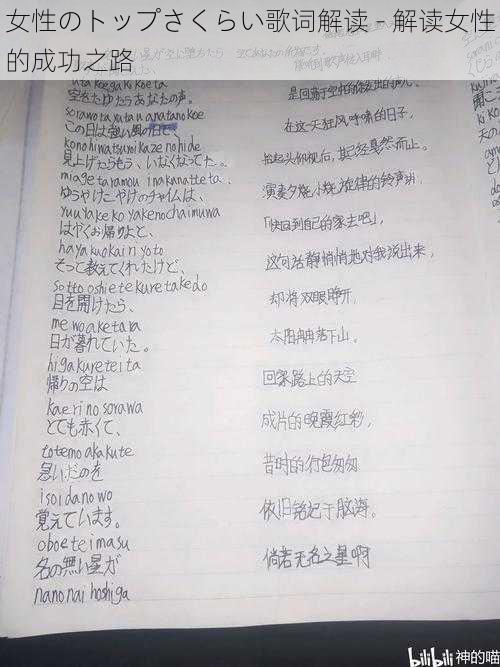 女性のトップさくらい歌词解读 - 解读女性
的成功之路
utakoegakikoeta
空をたゆたうあなたの声。
sorawotayutau anatanokoe
この日は強い風の日で、
konohiwatsumikazenohide
見上げたらもう、いなくなってた。
miagetaramou inakunatteta.
ゆうやけこやけのチャイムは、
yuuyakekoyakenochaimuwa
はやくお帰りよと、
hayakuokairiyoto
そっと教えてくれたけど、
sottooshietekuretakedo
目を開けたら、
mewoaketara
日が暮れていた。
higakureteita
帰りの空は
kaerinosorawa
とても赤くて、
totemoakakute
急いだのを
isoidanowo
覚えています。
oboeteimasu
名の無い星が
nanonaihoshiga
是回荡于空中的你发出的声儿
在这天狂风呼啸的日子，
抬起头仰视后，其已经戛然而止。
演奏夕烧小烧旋律的铃声讲，
「快回到自己的家去吧」，
这句话静悄悄地对我流出来，
却将双眼睁开，
太阳冉冉落下山。
回家路上的天空
成片的晚霞红彩，
昔时的行色匆匆
依旧铭记于脑海。
倘若无名之星啊
bilibili 神的喵